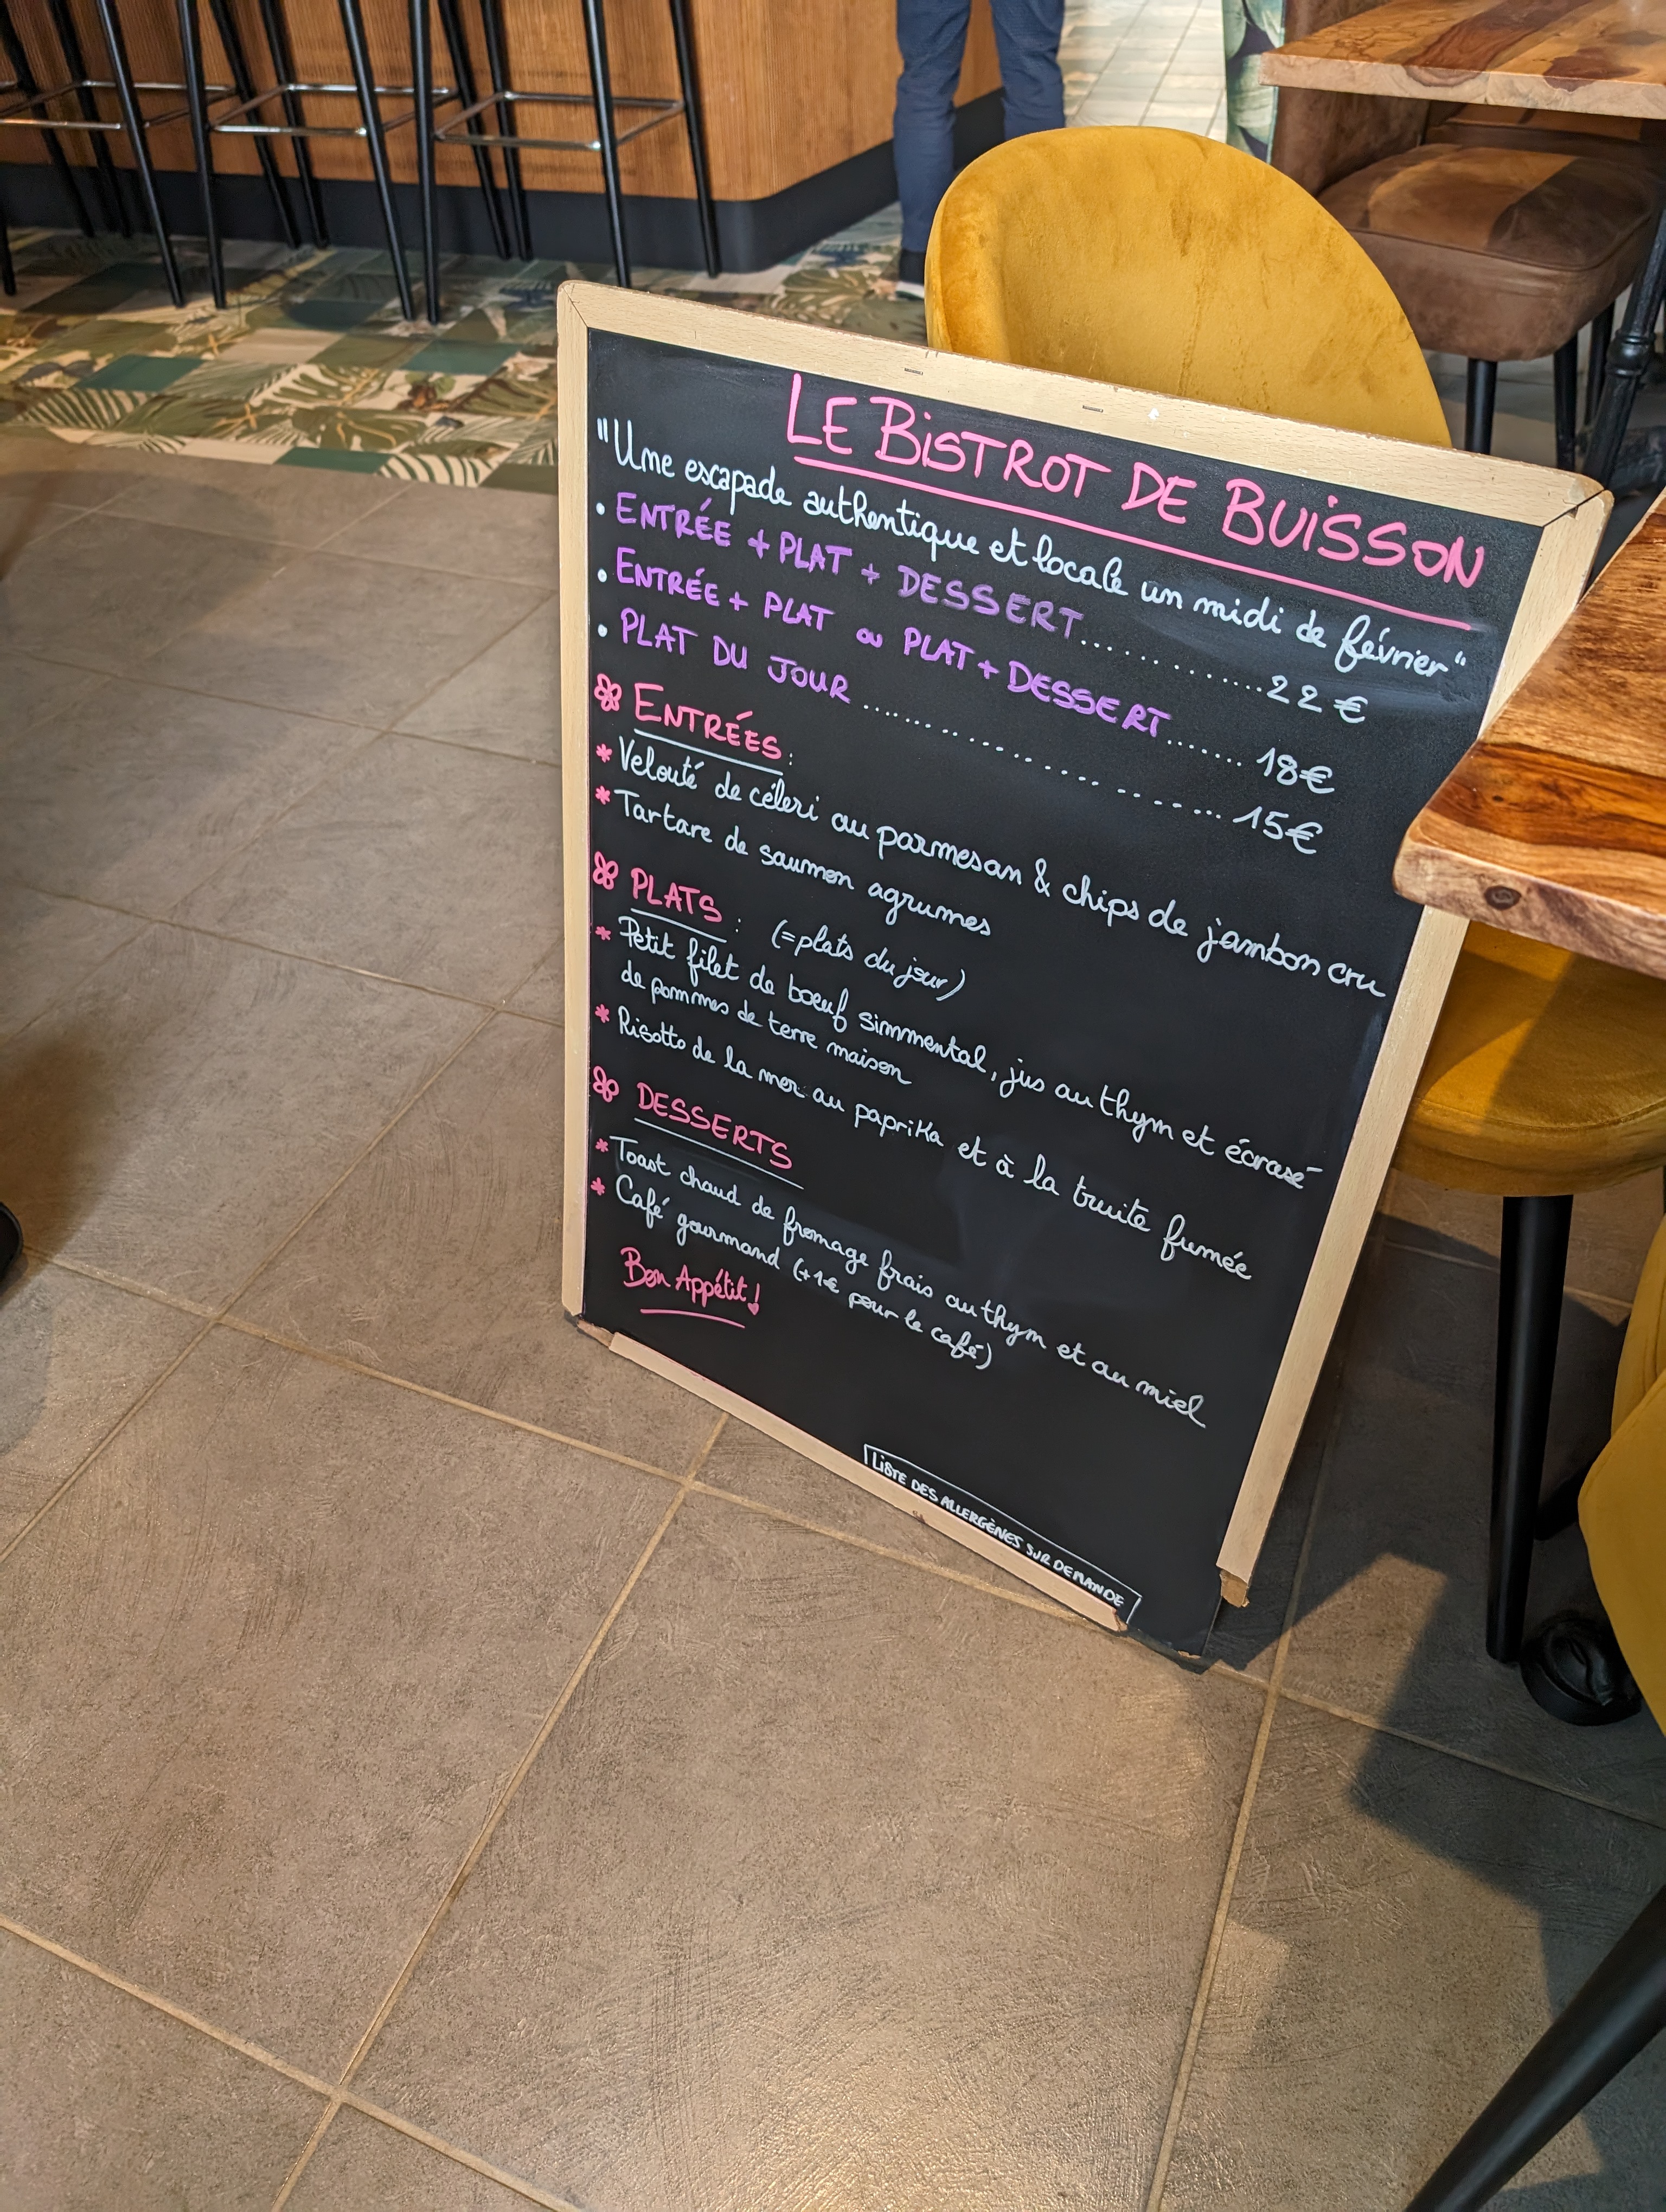 LE BISTROT DE BUISSON
"Une escapade authentique et locale un midi de février"
• ENTRÉE + PLAT + DESSERT.................22€
• ENTRÉE + PLAT ou PLAT + DESSERT....... 18€
• PLAT DU JOUR ................................ 15€
ENTRÉES :
* Velouté de céleri au parmesan & chips de jambon cru
* Tartare de saumon agrumes
PLATS : (=plats du jour)
* Petit filet de bœuf simmental, jus au thym et écrasé
de pommes de terre maison
* Risotto de la mer au paprika et à la truite fumée
DESSERTS
* Toast chaud de fromage frais au thym et au miel
* Café gourmand (+1€ pour le café)
Bon Appétit !
LISTE DES ALLERGÈNES SUR DEMANDE